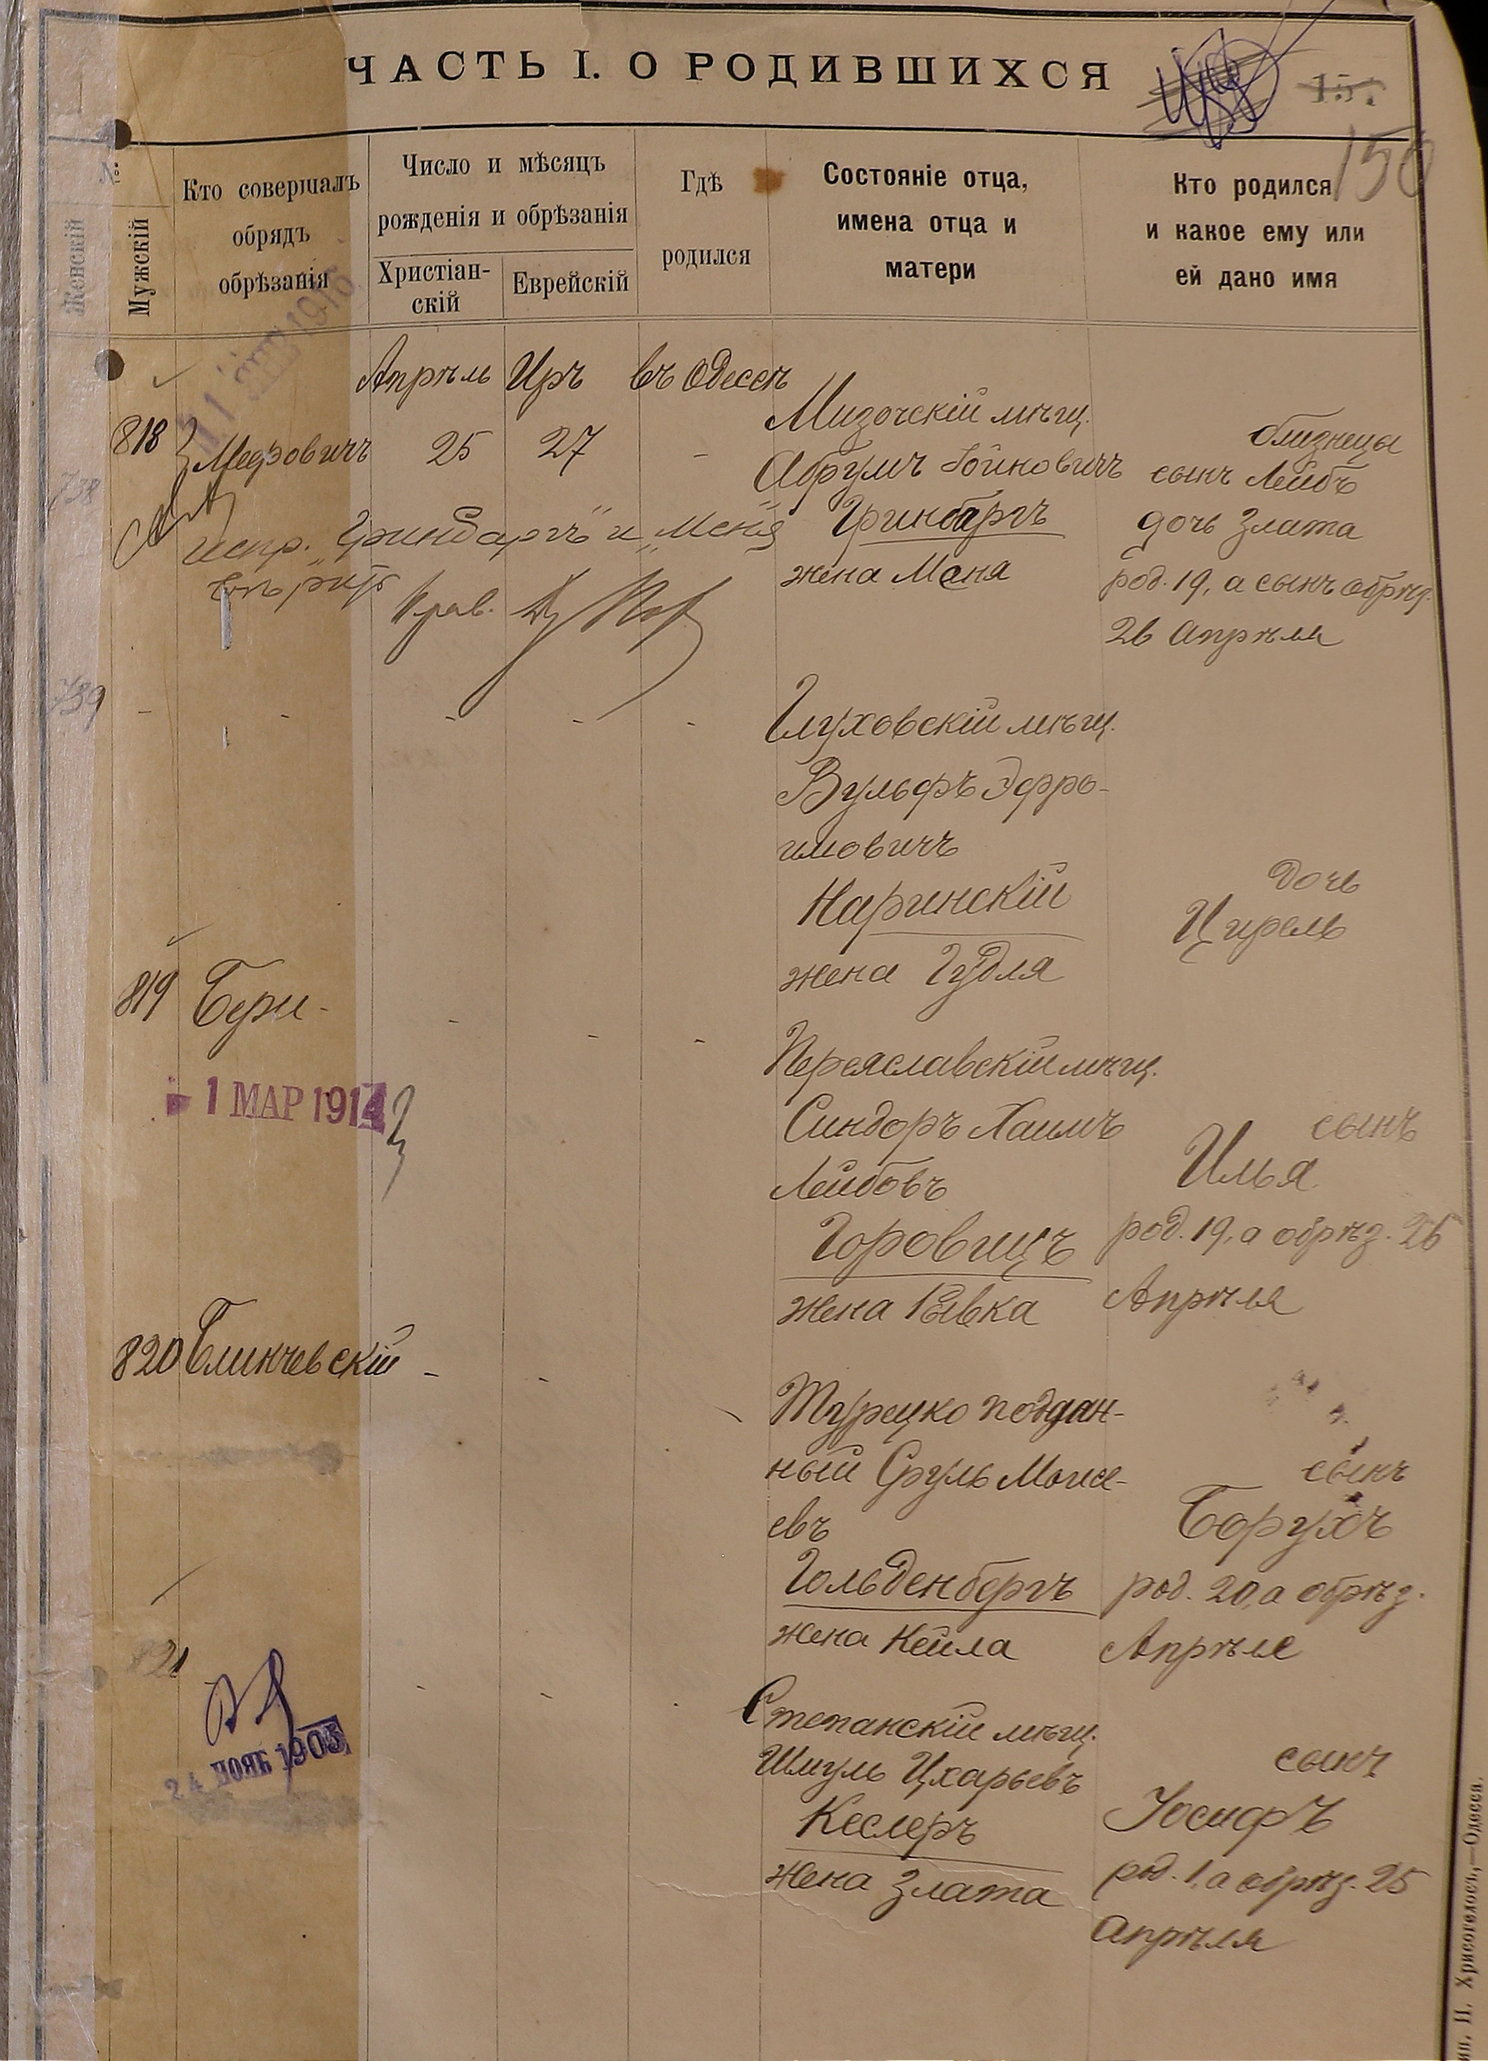 ЧАСТЬ I. О РОДИВШИХСЯ
150
№
Женскій
Мужскій
Кто совершалъ
обрядъ
обрѣзанія
Число и мѣсяцъ
рожденія и обрѣзанія
Христіан-
скій
Еврейскій
Гдѣ
родился
Состояніе отца,
имена отца и
матери
Кто родился
и какое ему или
ей дано имя
Апрѣль Иръ въ Одессѣ
818
738
Меэровичъ 25 27 -
Мизочскій мѣщ.
Абрумъ Гойновичъ
Гринбаргъ
жена Меня
близнецы
сынъ Лейбъ
дочь Злата
род. 19, а сынъ обрѣз.
26 Апрѣля
испр. „Гринбаргъ" и „Меня"
739 - - - - -
Глуховскій мѣщ.
Вульфъ Эфро-
имовичъ
Наринскій
жена Гудля
дочь
Цирель
819 Бери - - - -
1 МАР 1914
Переяславскій мѣщ.
Синдоръ Хаимъ
Лейбовъ
Горовицъ
жена Ривка
сынъ
Илья
род. 19, а обрѣз. 26
Апрѣля
820 Блинчевскій - -
Турецко поддан-
ный Сруль Моисе-
евъ
Гольденбергъ
жена Кейла
сынъ
Борухъ
род. 20, а обрѣз.
Апрѣле
821
24 НОЯБ 1905
Степанскій мѣщ.
Шмуль Цхарьевъ
Кеслеръ
жена Злата
сынъ
Іосифъ
род. 1, а обрѣз. 25
апрѣля
Тип. П. Хрисогелосъ,—Одесса.